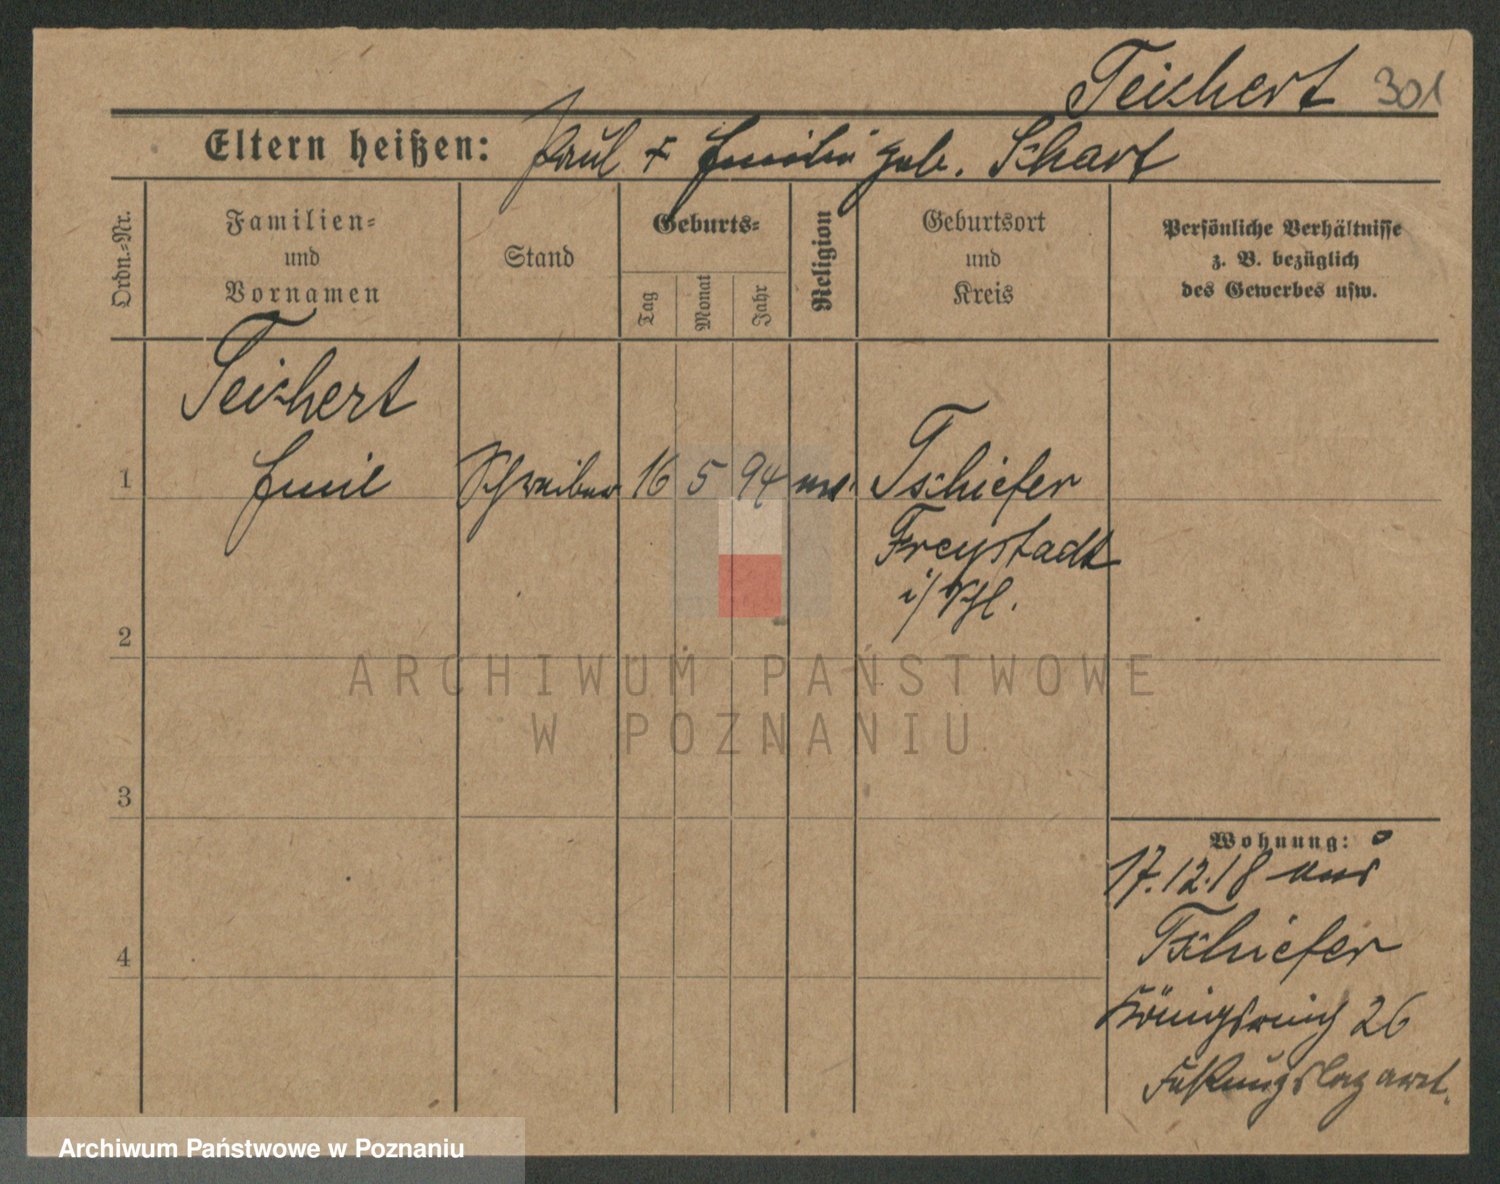 Teichert 301
Eltern heißen: Paul + Emilie geb. Schart
Ordn.-Nr.
Familien-
und
Vornamen
Stand
Geburts-
Tag
Monat
Jahr
Religion
Geburtsort
und
Kreis
Persönliche Verhältnisse
z. B. bezüglich
des Gewerbes usw.
Teichert
1 Emil Schreiber 16 5 94 Tschiefer
Freystadt
i/ Schl.
2
3
4
Wohnung:
17.12.18 aus
Tschiefer
26
Festungslazaret.
ARCHIWUM PAŃSTWOWE
W POZNANIU
Archiwum Państwowe w Poznaniu